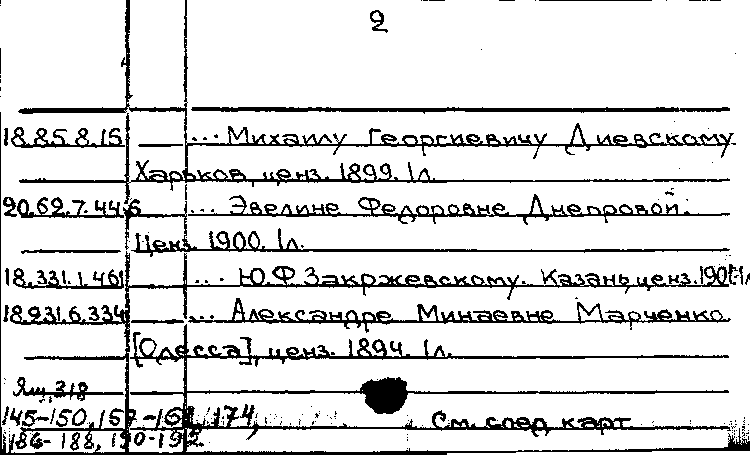 2
18.85.8.15 ... Михаилу Георгиевичу Диевскому
Харьков, ценз. 1899. 1л.
20.62.7.446 ... Эвелине Федоровне Днепровой.
Ценз. 1900. 1л.
18.331.1.461 ... Ю.Ф Закржевскому. Казань, ценз. 1901. 1л
18.231.6.334 ... Александре Минаевне Марченко
[Одесса], ценз. 1894. 1л.
Ящ. 318
145-150, 157 174, См. след карт
186-188, 190-192